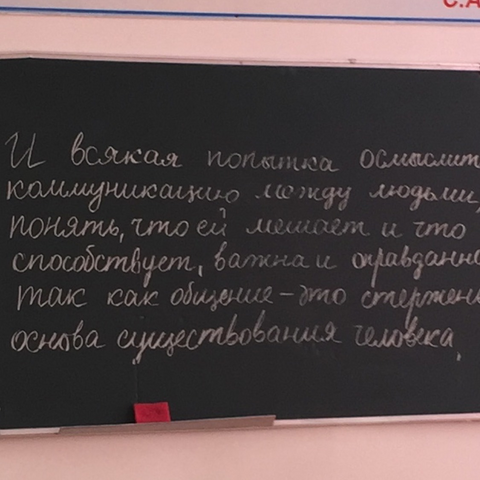 С.А
И всякая попытка осмыслит
коммуникацию между людьми,
понять, что ей мешает и что
способствует, важна и оправданна
так как общение - это стержень
основа существования человека.